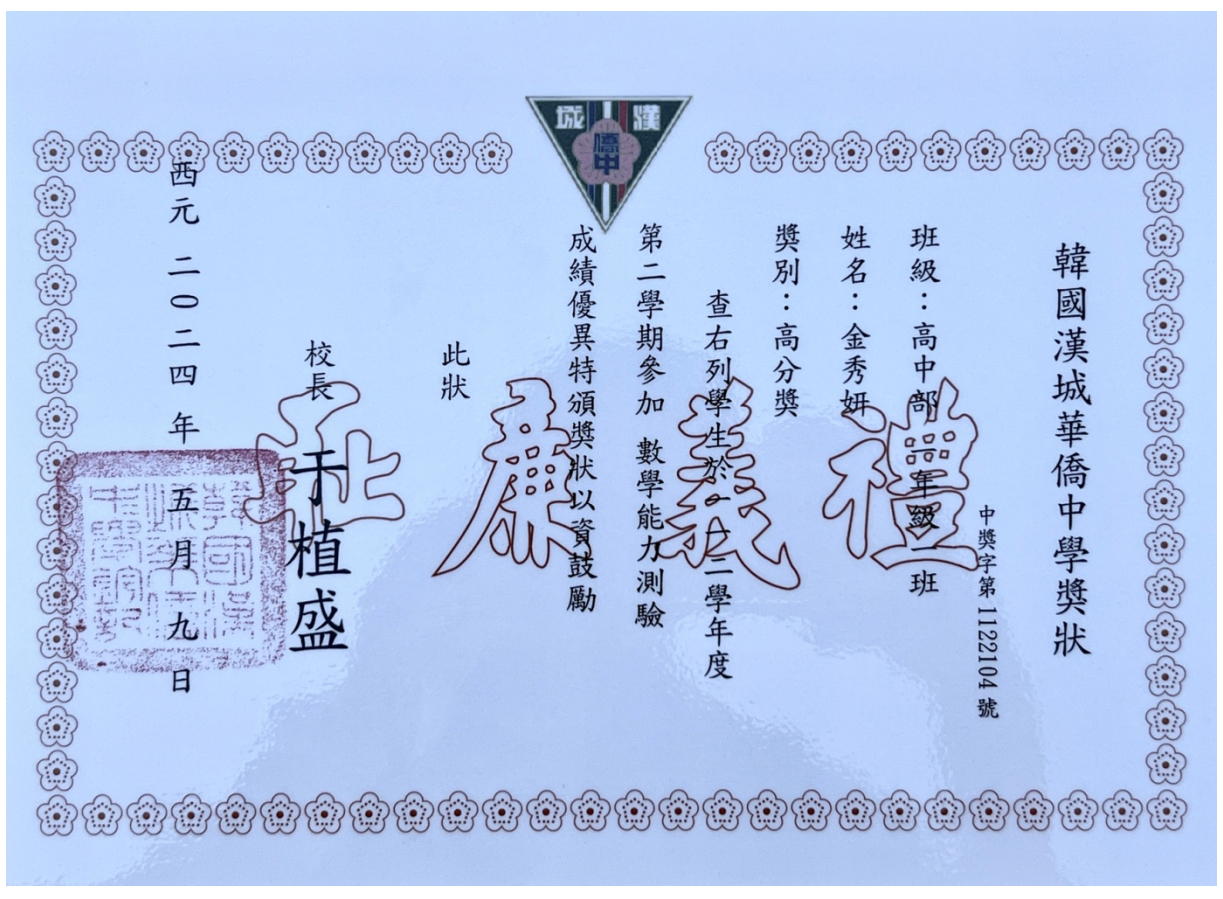 漢城
僑中
韓國漢城華僑中學獎狀
中獎字第 1122104 號
班級：高中部 年級 班
姓名：金秀妍
獎別：高分獎
查右列學生於一一二學年度
第二學期參加 數學能力測驗
成績優異特頒獎狀以資鼓勵
此狀
校長
于植盛
西元 二○二四 年 五 月 九 日
禮義廉恥